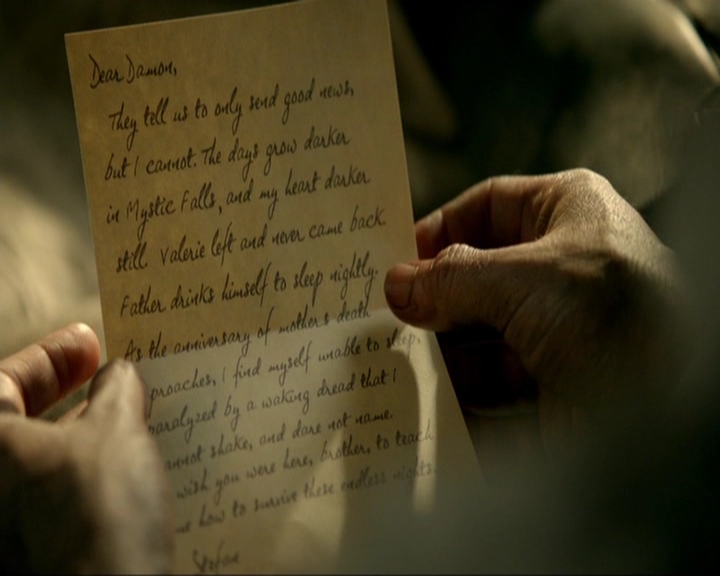 Dear Damon,
They tell us to only send good news,
but I cannot. The days grow darker
in Mystic Falls, and my heart darker
still. Valerie left and never came back.
Father drinks himself to sleep nightly.
As the anniversary of mother's death
proaches, I find myself unable to sleep,
paralyzed by a waking dread that I
annot shake, and dare not name.
wish you were here, brother, to teach
me how to survive these endless nights.
Stefan